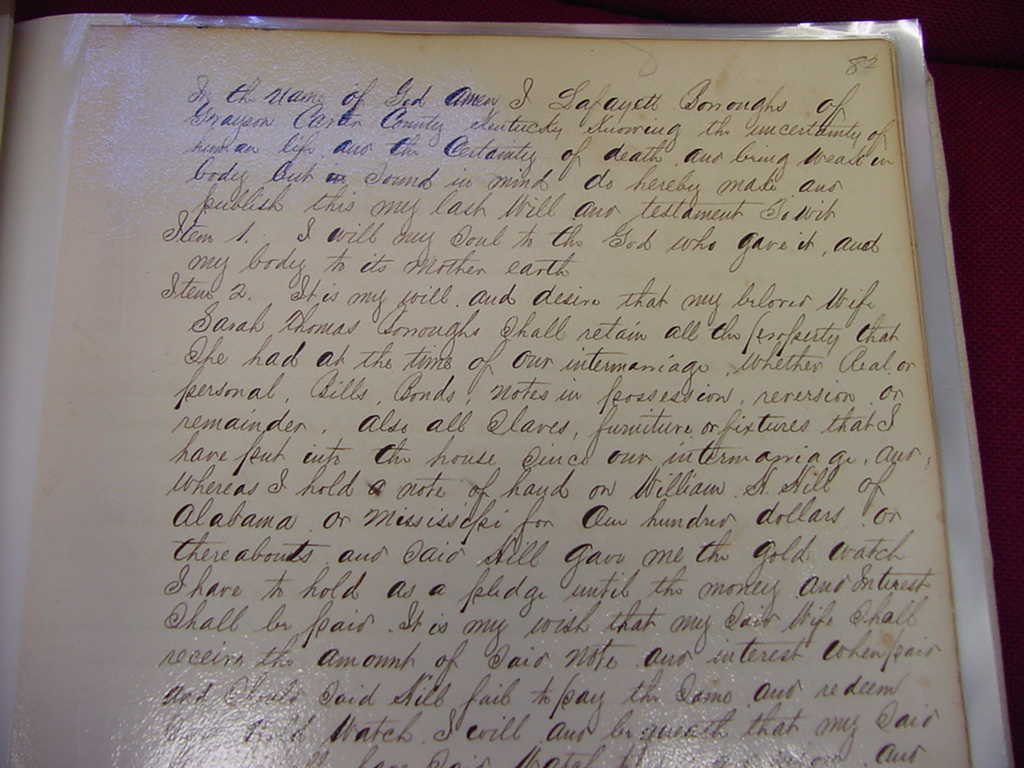 82
In the name of God Amen I Lafayett Borroughs of
Grayson Carter County Kentucky Knowing the uncertainty of
human life and the Certainty of death and being weak in
body but in Sound in mind do hereby make and
publish this my last Will and testament To wit
Item 1. I will my Soul to the God who gave it, and
my body to its Mother earth
Item 2. It is my will and desire that my beloved Wife
Sarah Thomas Borroughs Shall retain all the property that
She had at the time of our intermarriage, Whether Real or
personal, Bills, Bonds, notes in possession, reversion or
remainder. Also all Slaves, furniture or fixtures that I
have put into the house Since our intermarriage, and,
Whereas I hold a note of hand on William H. Hill of
Alabama or Mississipi for One hundred dollars or
thereabouts and Said Hill gave me the gold watch
I have to hold as a pledge until the money and Interest
Shall be paid. It is my wish that my Said Wife Shall
receive the amount of Said Note and interest when paid
and Should Said Hill fail to pay the Same and redeem
Gold Watch I will and bequeath that my Said
have Said Watch and